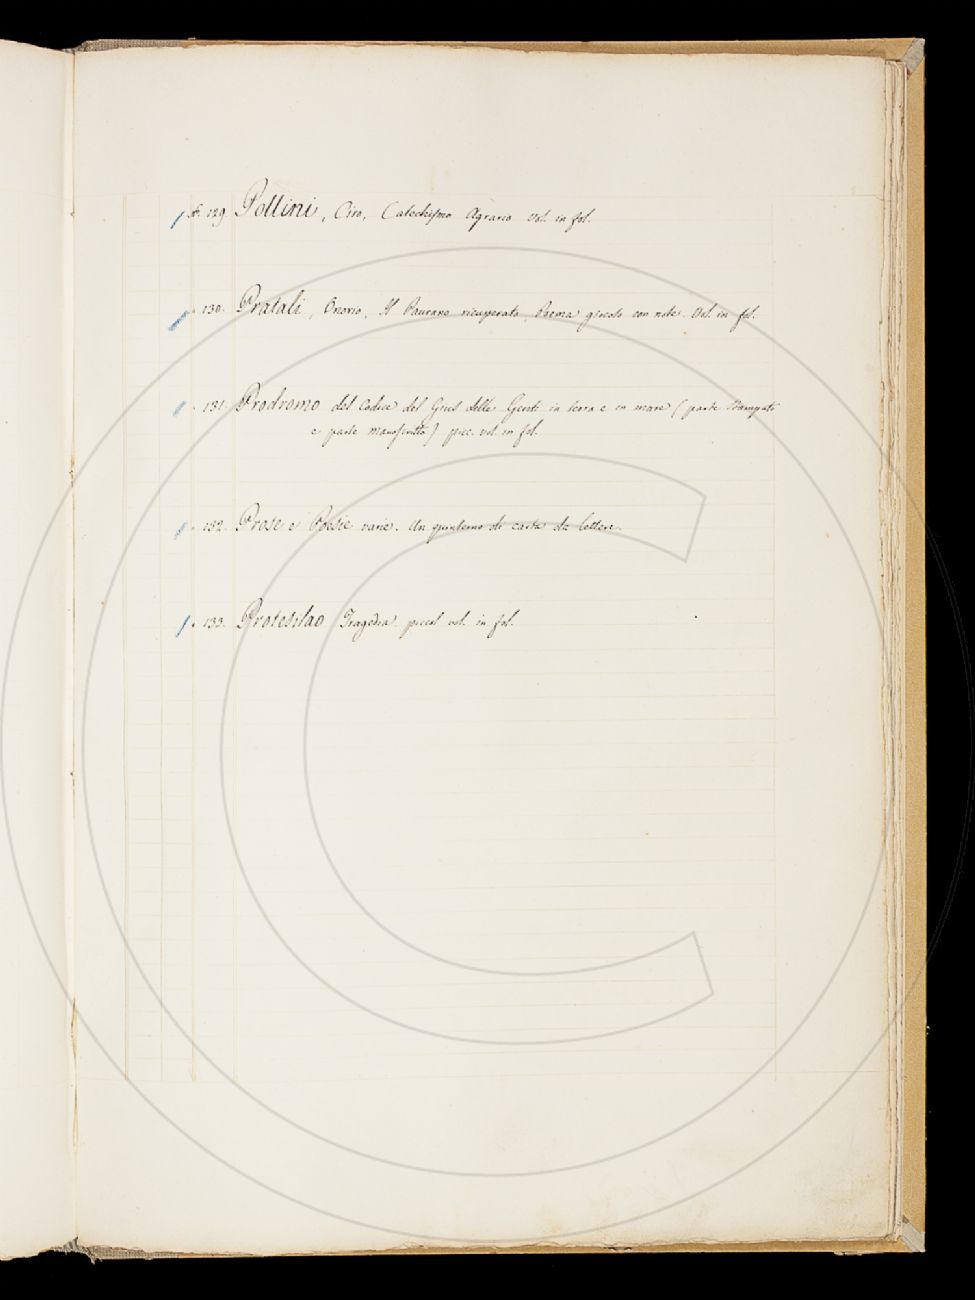 N. 129. Pollini, Ciro, Catechismo Agrario Vol. in fol.
" 130. Pratali, Onorio, Il Paurano ricuperato, Poema giocoso con note. Vol. in fol.
" 131. Prodromo del Codice del Gius delle Genti in terra e in mare (parte stampato
e parte manoscritto) picc. vol. in fol.
" 132. Prose e Poesie varie. Un quinterno di carta da lettere.
" 133. Protesilao Tragedia. piccol vol. in fol.